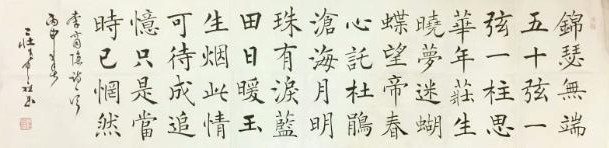 錦瑟無端
五十弦一
弦一柱思
華年莊生
曉夢迷蝴
蝶望帝春
心託杜鵑
滄海月明
珠有淚藍
田日暖玉
生烟此情
可待成追
憶只是當
時已惘然
李商隱詩
丙申